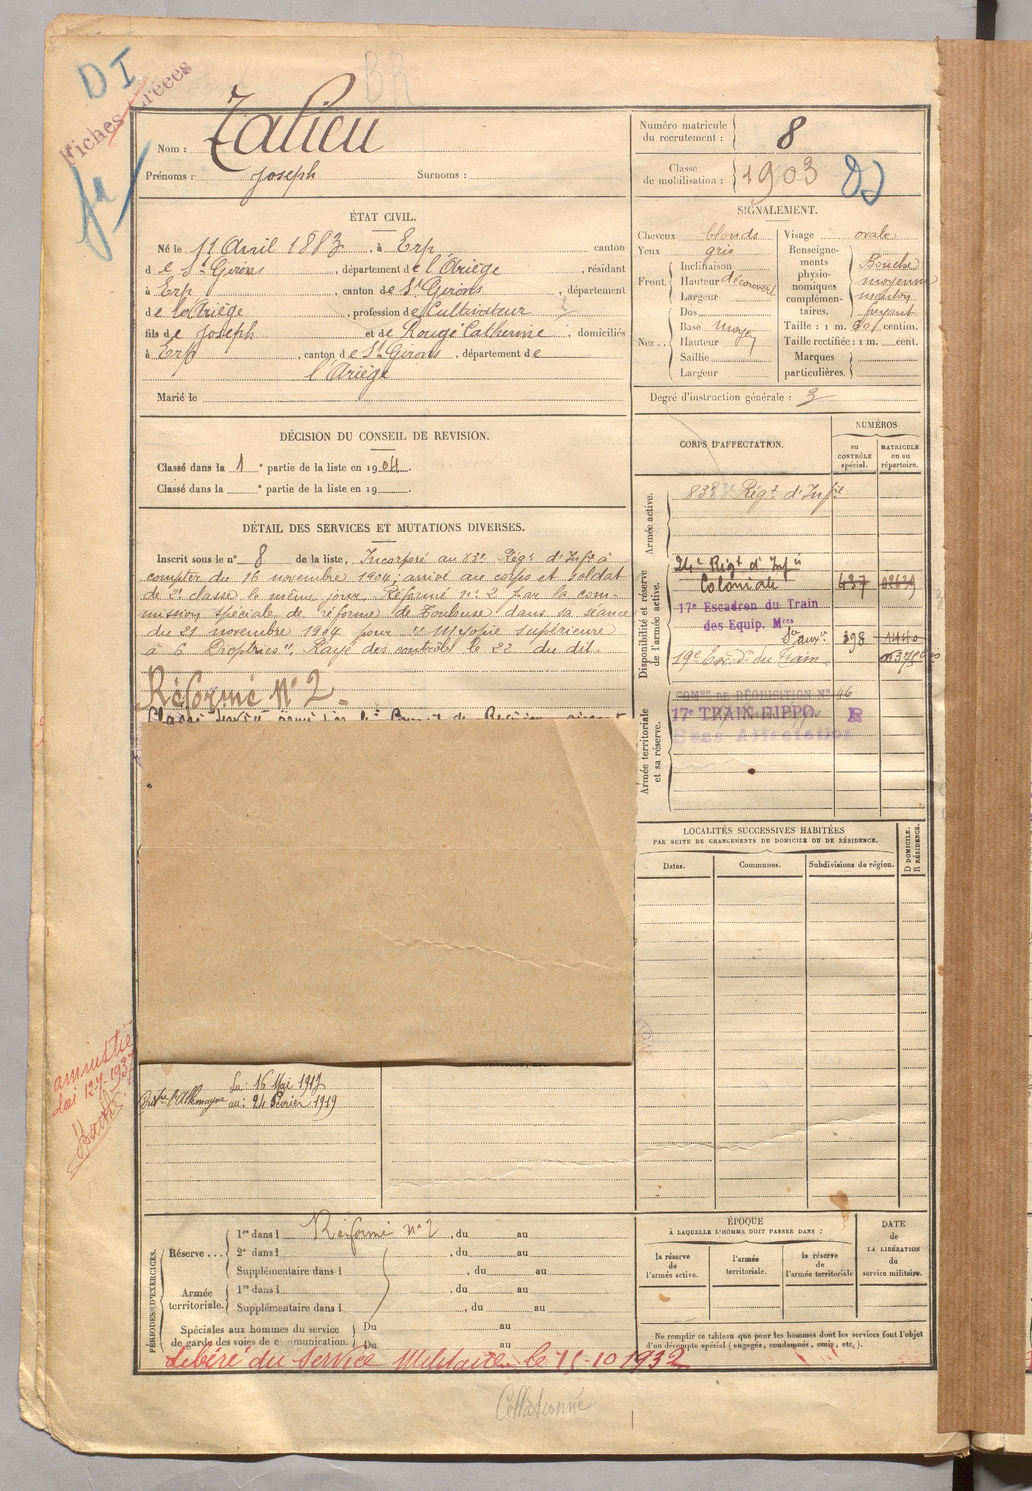 DI
BR
Fiches créées
Nom : Talieu
Prénoms : Joseph Surnoms :
Numéro matricule du recrutement : 8
Classe de mobilisation : 1903
ÉTAT CIVIL.
Né le 11 Avril 1883, à Erp canton
de St Girons, département de l'Ariège, résidant
à Erp, canton de St Girons, département
de l'Ariège, profession de Cultivateur
fils de Joseph et de Rougé Catherine, domiciliés
à Erp, canton de St Girons, département de
l'Ariège
Marié le
SIGNALEMENT.
Cheveux blonds
Yeux gris
Front. Inclinaison
Hauteur découvert
Largeur
Nez.. Dos
Base moy
Hauteur
Saillie
Largeur
Visage ovale
Renseignements physionomiques complémentaires. Bouche
moyenne
menton
fuyant
Taille : 1 m. 60 centim.
Taille rectifiée : 1 m. cent.
Marques particulières.
Degré d'instruction générale : 3
DÉCISION DU CONSEIL DE REVISION.
Classé dans la 1e partie de la liste en 1904.
Classé dans la e partie de la liste en 19 .
CORPS D'AFFECTATION.
NUMÉROS
au CONTRÔLE spécial.
MATRICULE ou au répertoire.
Armée active.
83e Régt d'Infie
Disponibilité et réserve de l'armée active.
24e Régt d'Infie
Coloniale 437
17e Escadron du Train
des Equip. Mres
Sce auxre 398
19e Esc. du Train
Armée territoriale et sa réserve.
COMon DE RÉQUISITION N° 46
17e TRAIN HIPPO R
Sans Affectation
DÉTAIL DES SERVICES ET MUTATIONS DIVERSES.
Inscrit sous le n° 8 de la liste, Incorporé au 83e Régt d'Infie à
compter du 16 novembre 1904, arrivé au corps et soldat
de 2e classe le même jour. Réformé n° 2 par la com-
mission spéciale de réforme de Toulouse dans sa séance
du 21 novembre 1904 pour "Myopie supérieure
à 6 Dioptries". Rayé des contrôles le 22 du dit.
Réformé N° 2.
LOCALITÉS SUCCESSIVES HABITÉES
PAR SUITE DE CHANGEMENTS DE DOMICILE OU DE RÉSIDENCE.
Dates.
Communes.
Subdivisions de région.
D DOMICILE.
R RÉSIDENCE.
amnistié
loi 12-7-1937
Contre l'Allemagne du : 16 Mai 1917
au : 24 Février 1919
PÉRIODES D'EXERCICES.
Réserve... 1re dans l Réformé n° 2, du au
2e dans l , du au
Supplémentaire dans l , du au
Armée territoriale. 1re dans l , du au
Supplémentaire dans l , du au
Spéciales aux hommes du service de garde des voies de communication. Du au
Du au
ÉPOQUE
À LAQUELLE L'HOMME DOIT PASSER DANS :
la réserve de l'armée active.
l'armée territoriale.
la réserve de l'armée territoriale
DATE de LA LIBÉRATION du service militaire.
Ne remplir ce tableau que pour les hommes dont les services font l'objet
d'un décompte spécial (engagés, condamnés, omis, etc.).
Libéré du Service Militaire le 15-10 1932
Collationné